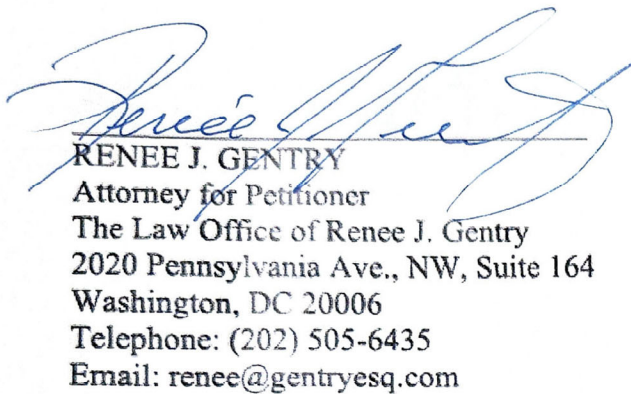 Renée J Gentry
RENEE J. GENTRY
Attorney for Petitioner
The Law Office of Renee J. Gentry
2020 Pennsylvania Ave., NW, Suite 164
Washington, DC 20006
Telephone: (202) 505-6435
Email: renee@gentryesq.com